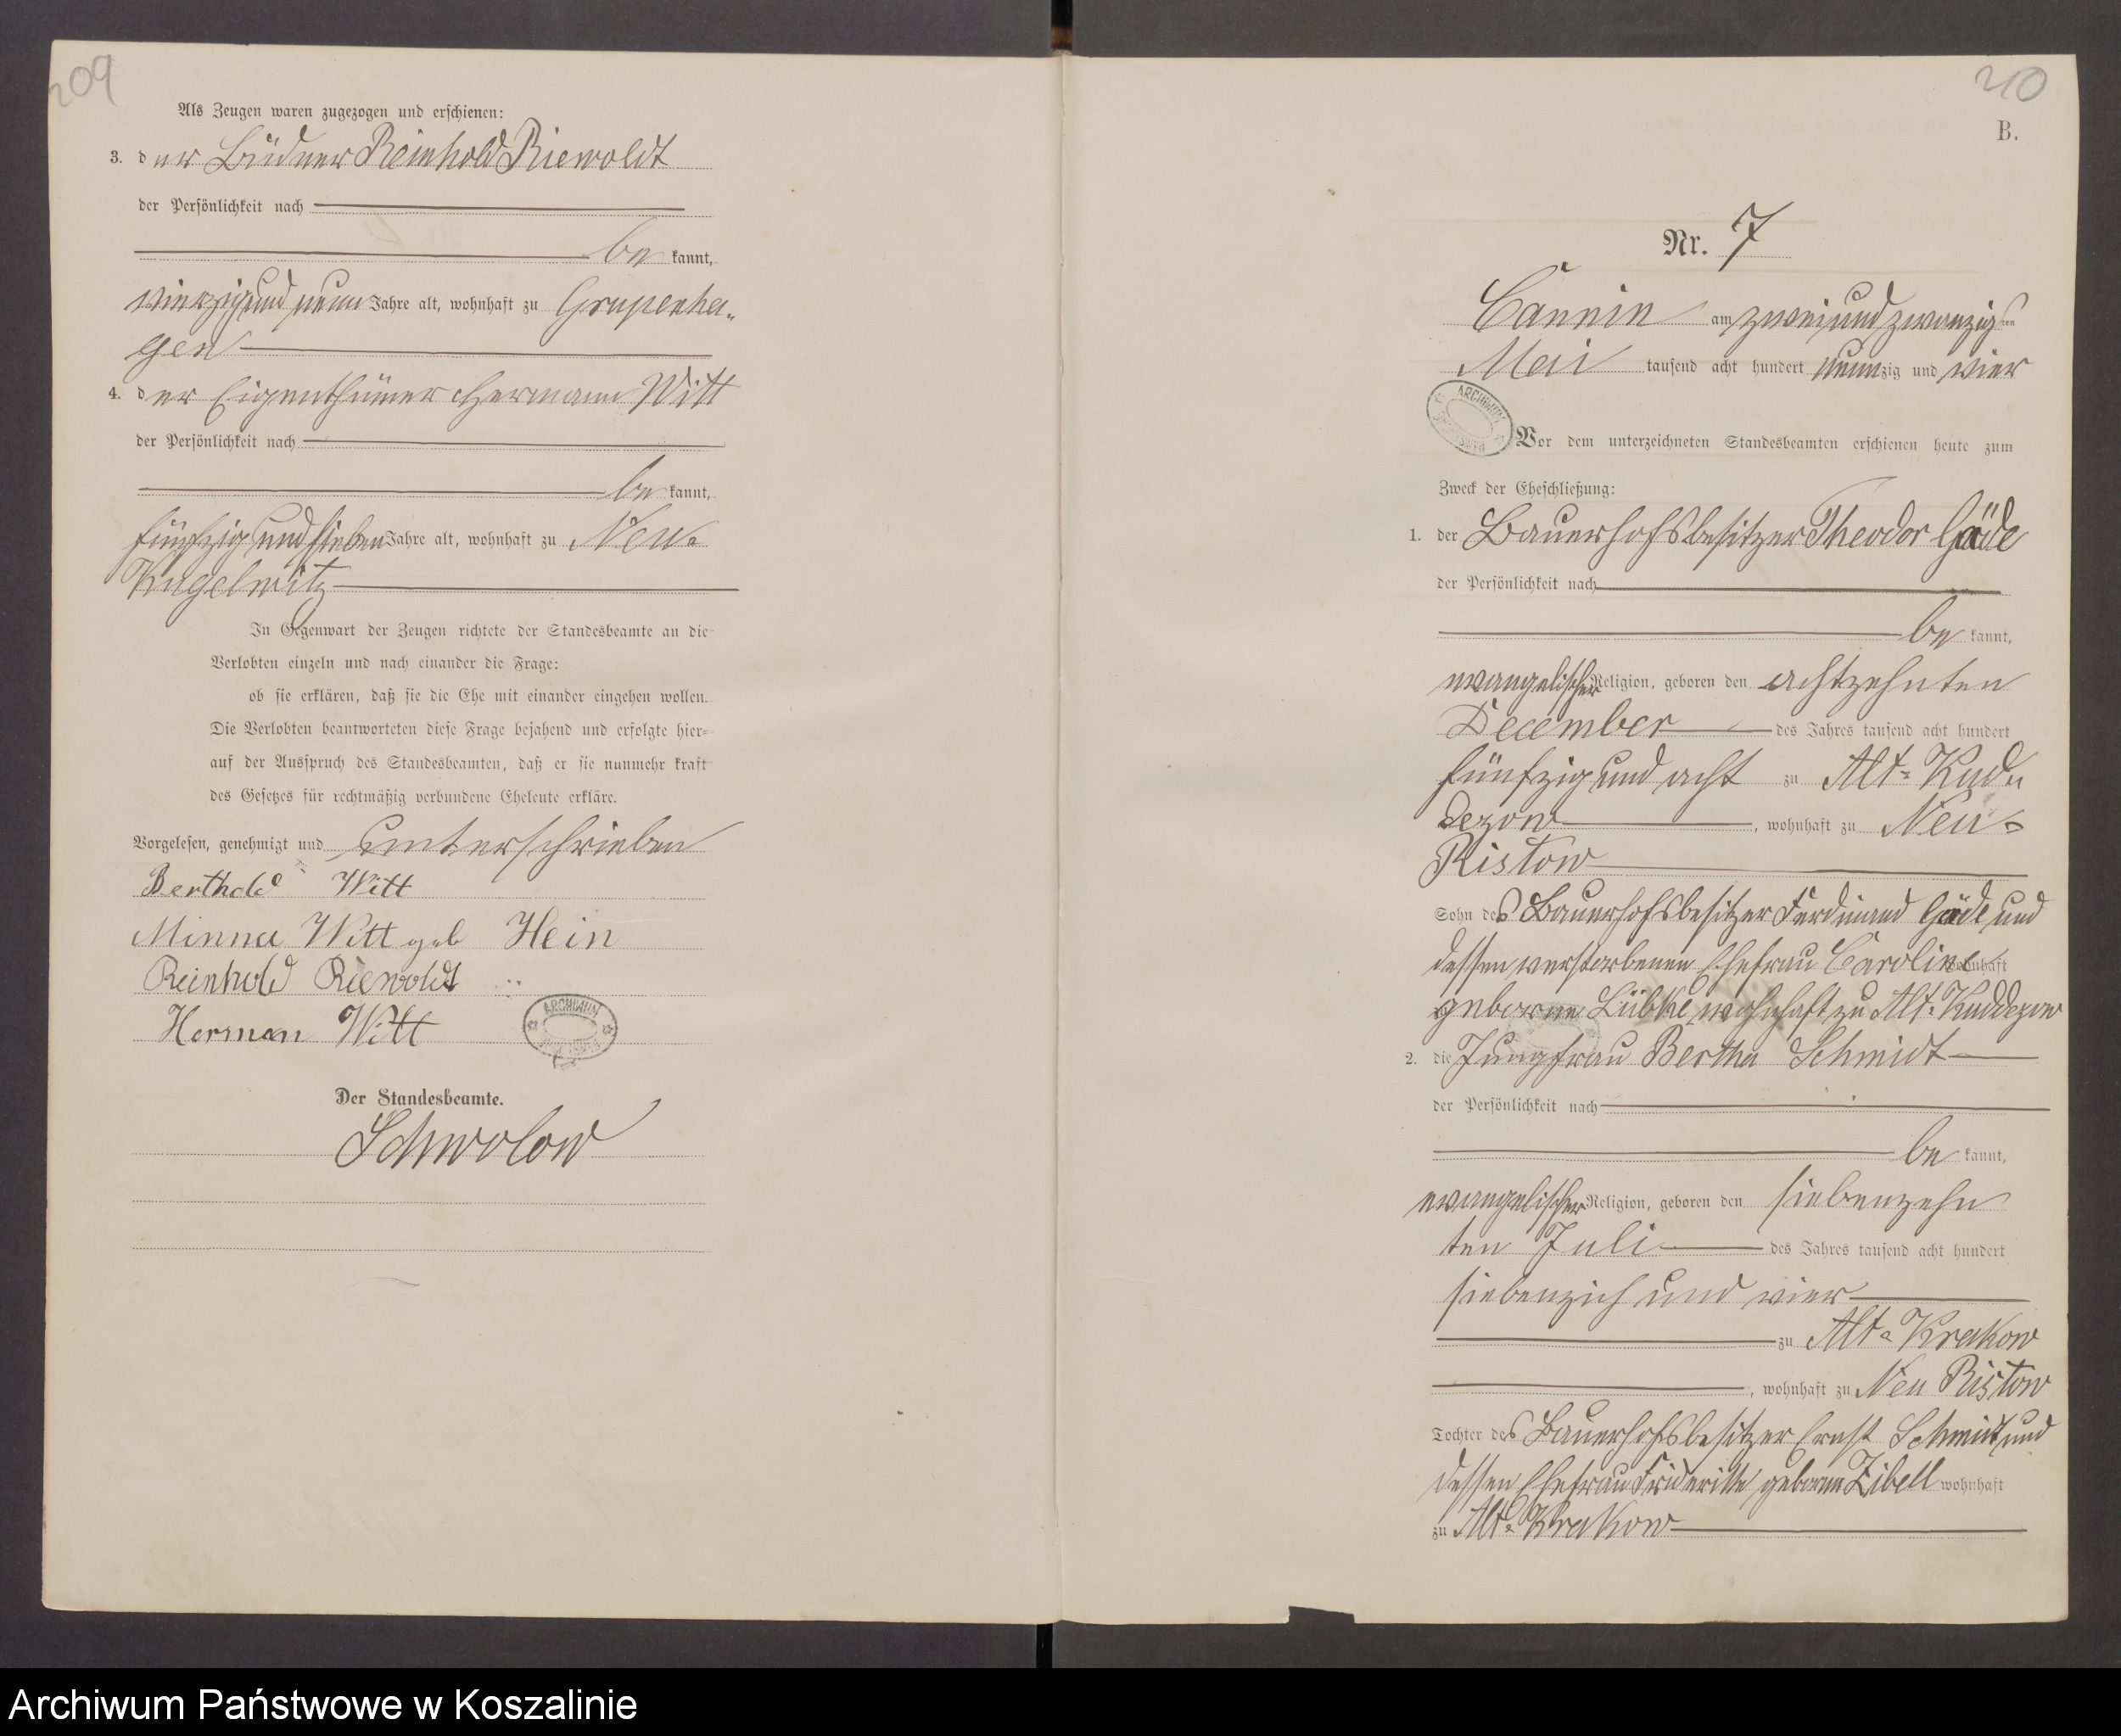 209
Als Zeugen waren zugezogen und erschienen:
3. der Büdner Reinhold Riewoldt
der Persönlichkeit nach
be kannt,
vierzig und neun Jahre alt, wohnhaft zu Grupenha-
gen
4. der Eigenthümer Hermann Witt
der Persönlichkeit nach
be kannt,
fünfzig und sieben Jahre alt, wohnhaft zu Neu-
Kugelwitz
In Gegenwart der Zeugen richtete der Standesbeamte an die
Verlobten einzeln und nach einander die Frage:
ob sie erklären, daß sie die Ehe mit einander eingehen wollen.
Die Verlobten beantworteten diese Frage bejahend und erfolgte hier-
auf der Ausspruch des Standesbeamten, daß er sie nunmehr kraft
des Gesetzes für rechtmäßig verbundene Eheleute erkläre.
Vorgelesen, genehmigt und unterschrieben
Berthold Witt
Minna Witt geb Hein
Reinhold Riewoldt
Herman Witt
ARCHIWUM
Der Standesbeamte.
Schwolow
210
B.
Nr. 7
Cannin am zwei und zwanzigsten
Mai tausend acht hundert neunzig und vier
ARCHIWUM
Vor dem unterzeichneten Standesbeamten erschienen heute zum
Zweck der Eheschließung:
1. der Bauerhofsbesitzer Theodor Gäde
der Persönlichkeit nach
be kannt,
evangelischer Religion, geboren den achtzehnten
December des Jahres tausend acht hundert
fünfzig und acht zu Alt-Kud-
dezow, wohnhaft zu Neu-
Ristow
Sohn des Bauerhofsbesitzer Ferdinand Gäde und
dessen verstorbenen Ehefrau Caroline wohnhaft
geborne Lübke, wohnhaft zu Alt-Kuddezow
2. die Jungfrau Bertha Schmidt
der Persönlichkeit nach
be kannt,
evangelischer Religion, geboren den siebenzehn
ten Juli des Jahres tausend acht hundert
siebenzich und vier
zu Alt-Krakow
, wohnhaft zu Neu Ristow
Tochter des Bauerhofsbesitzer Ernst Schmidt und
dessen Ehefrau Friderike geborne Zibell wohnhaft
zu Alt-Krakow
Archiwum Państwowe w Koszalinie